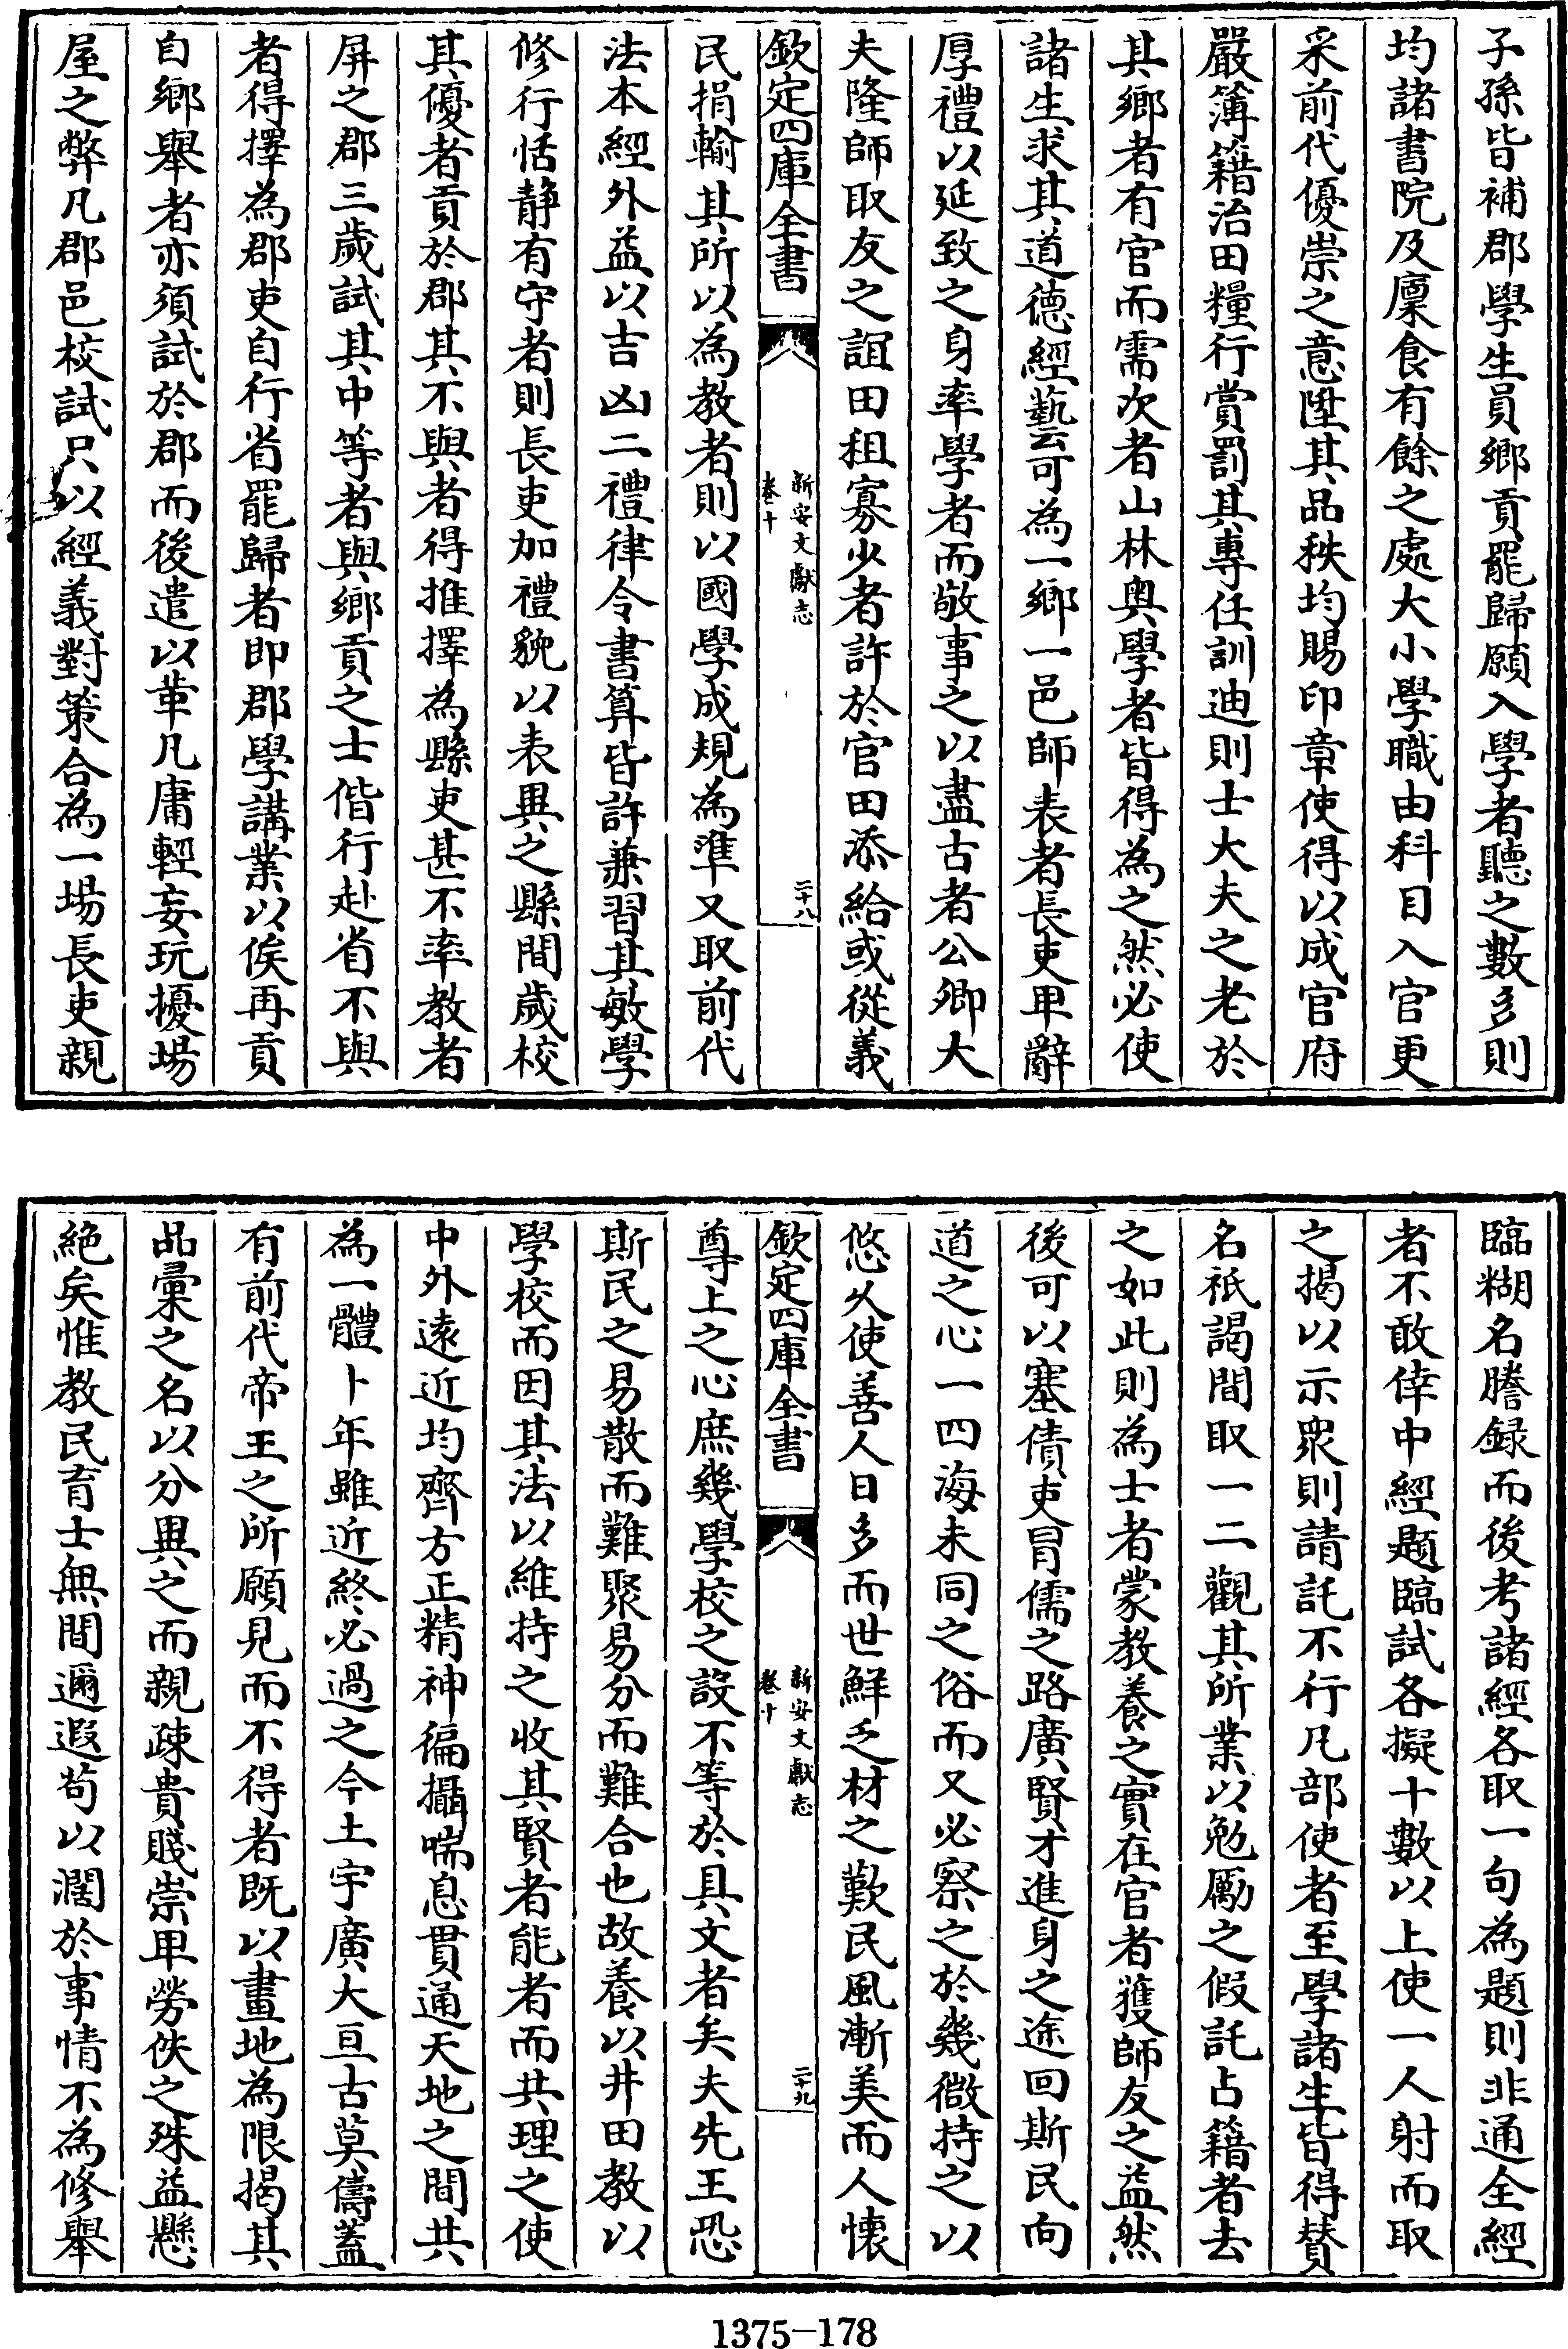 子孫皆補郡學生員鄉貢罷歸願入學者聽之數多則
均諸書院及廩食有餘之處大小學職由科目入官更
采前代優崇之意陞其品秩均賜印章使得以成官府
嚴簿籍治田糧行賞罰其專任訓迪則士大夫之老於
其鄉者有官而需次者山林奥學者皆得為之然必使
諸生求其道德經藝可為一鄉一邑師表者長吏卑辭
厚禮以延致之身率學者而敬事之以盡古者公卿大
夫隆師取友之誼田租寡少者許於官田添給或從義
欽定四庫全書
新安文獻志
卷十
二十八
民捐輸其所以為教者則以國學成規為準又取前代
法本經外益以吉凶二禮律令書算皆許兼習其敏學
修行恬静有守者則長吏加禮貌以表異之縣間歲校
其優者貢於郡其不與者得推擇為縣吏甚不率教者
屏之郡三歲試其中等者與鄉貢之士偕行赴省不與
者得擇為郡吏自行省罷歸者即郡學講業以俟再貢
自鄉舉者亦須試於郡而後遣以革凡庸輕妄玩擾場
屋之弊凡郡邑校試只以經義對策合為一場長吏親
臨糊名謄録而後考諸經各取一句為題則非通全經
者不敢倖中經題臨試各擬十數以上使一人射而取
之揭以示衆則請託不行凡部使者至學諸生皆得贄
名祇謁間取一二觀其所業以勉厲之假託占籍者去
之如此則為士者蒙教養之實在官者獲師友之益然
後可以塞債吏冒儒之路廣賢才進身之途回斯民向
道之心一四海未同之俗而又必察之於幾微持之以
悠久使善人日多而世鮮乏材之歎民風漸美而人懐
欽定四庫全書
新安文獻志
卷十
二十九
尊上之心庶幾學校之設不等於具文者矣夫先王恐
斯民之易散而難聚易分而難合也故養以井田教以
學校而因其法以維持之收其賢者能者而共理之使
中外遠近均齊方正精神徧攝喘息貫通天地之間共
為一體卜年雖近終必過之今土宇廣大亘古莫儔蓋
有前代帝王之所願見而不得者既以畫地為限揭其
品彙之名以分異之而親疎貴賤崇卑勞佚之殊益懸
絶矣惟教民育士無間邇遐茍以濶於事情不為修舉
1375-178